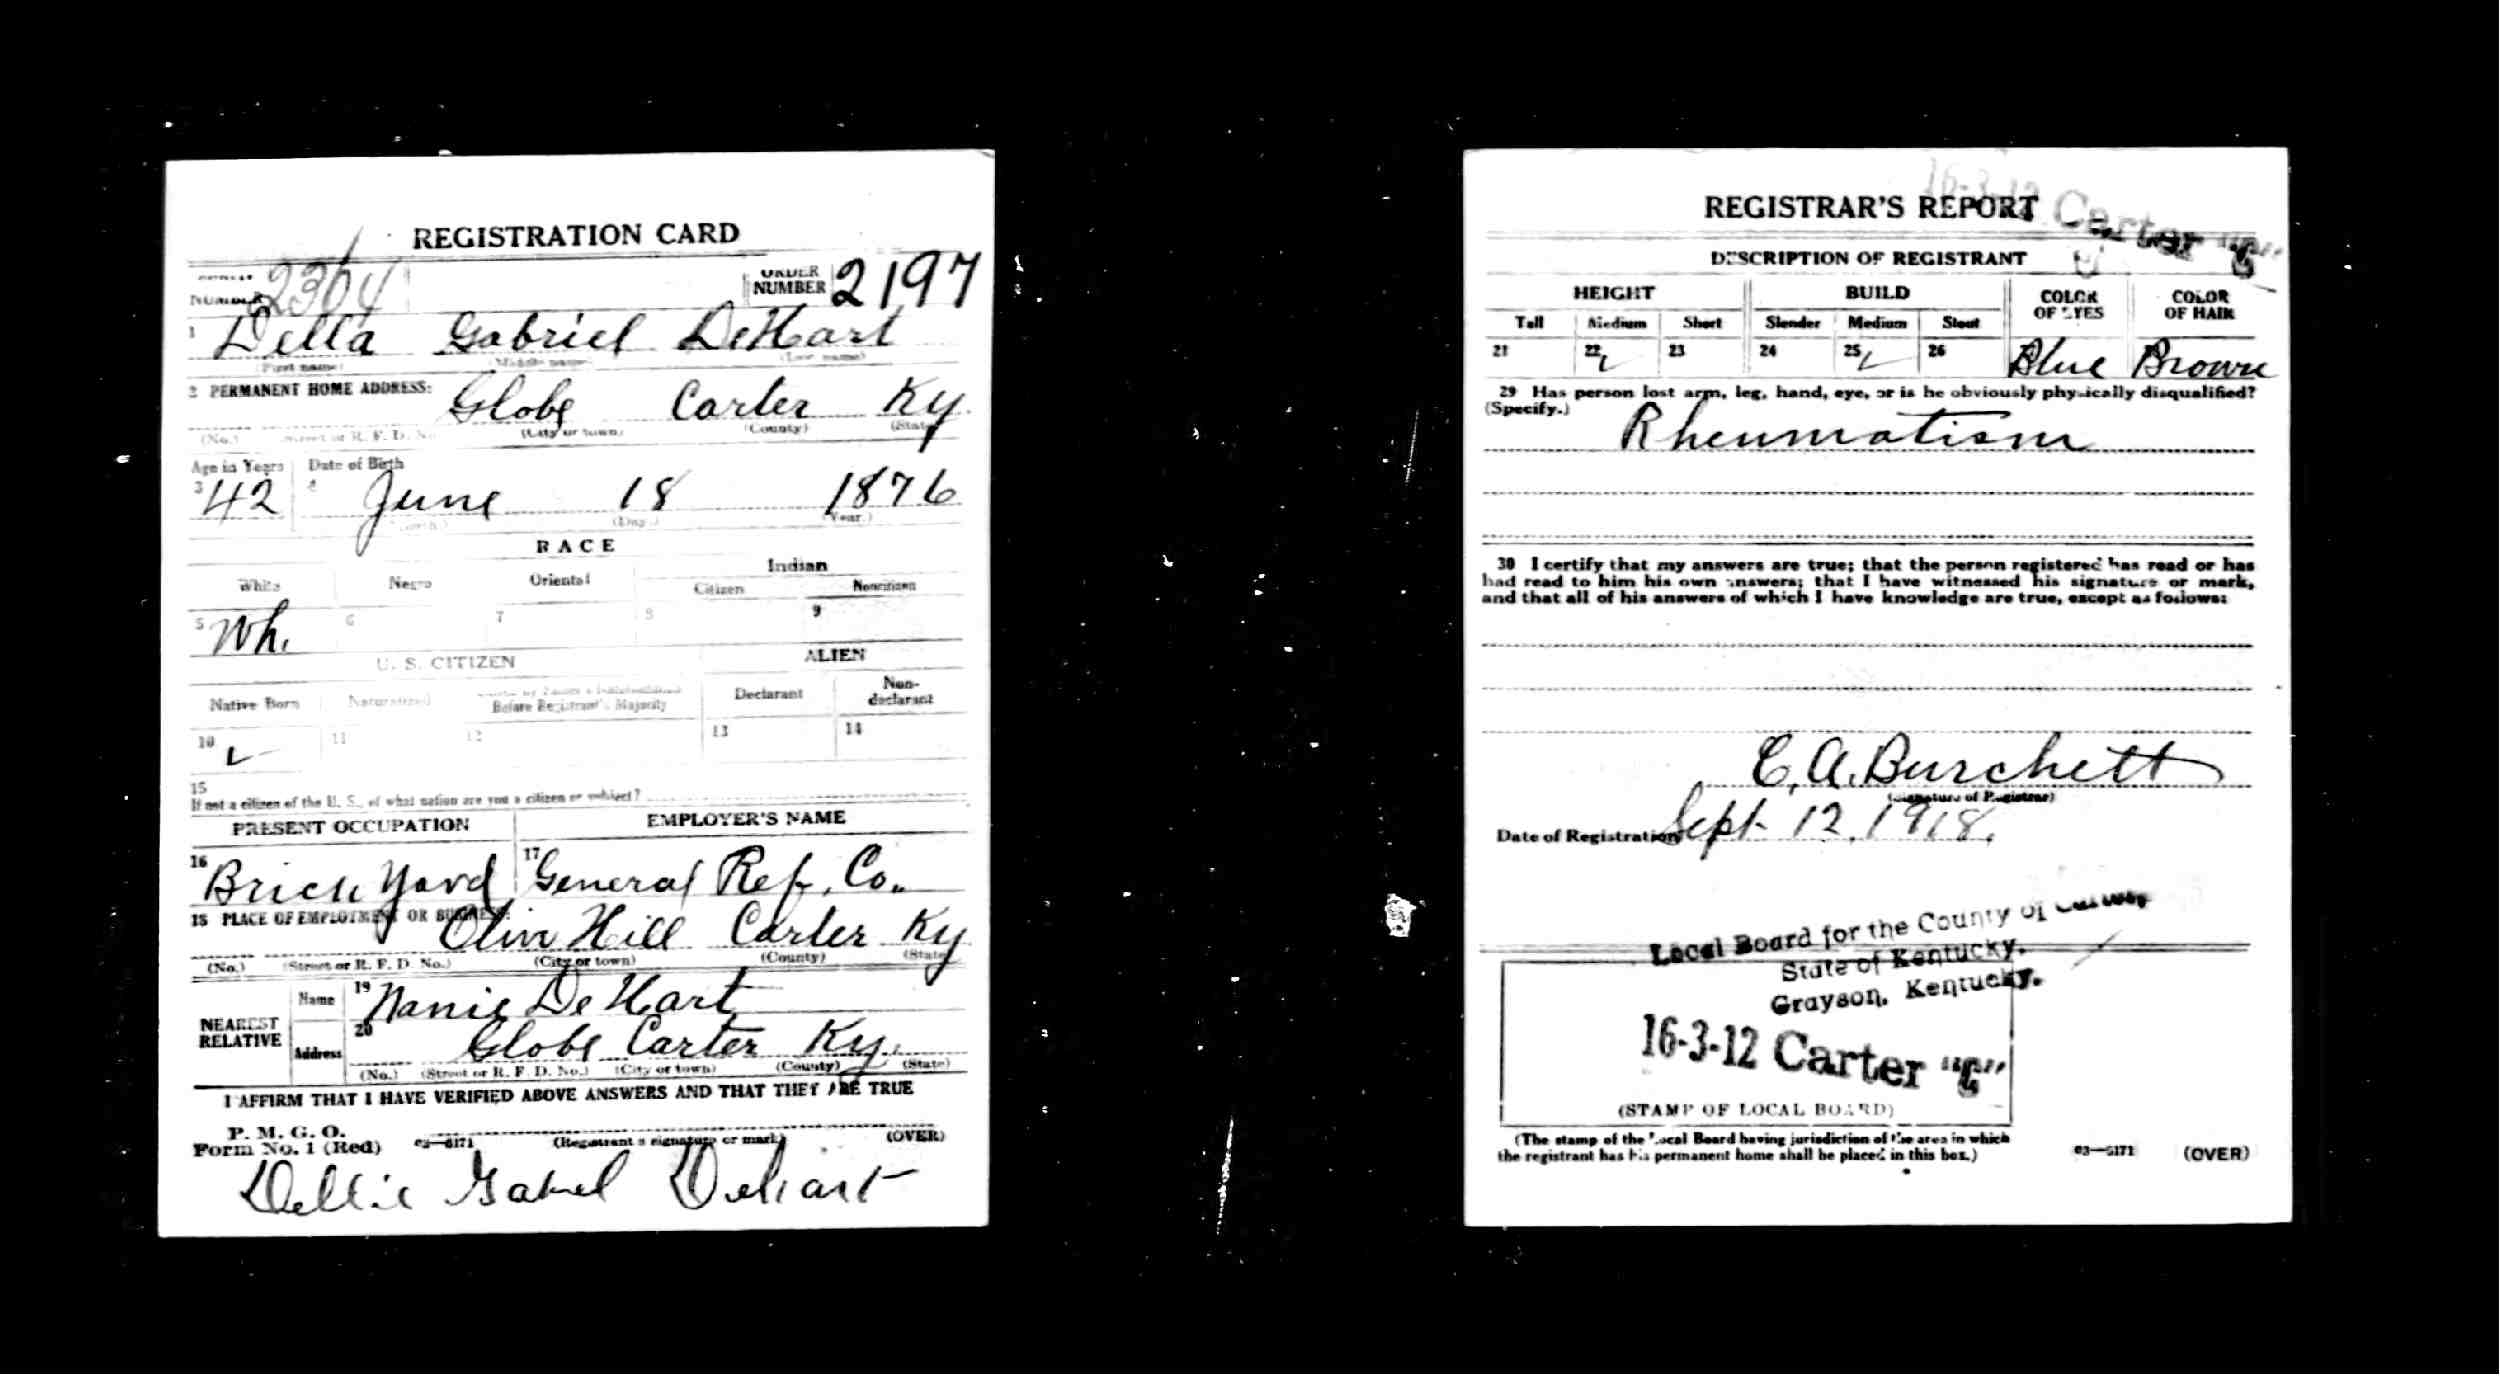 REGISTRATION CARD
SERIAL NUMBER 2364 ORDER NUMBER 2197
1 Della Gabriel DeHart
(First name) (Middle name) (Last name)
2 PERMANENT HOME ADDRESS: Globe Carter Ky.
(No.) (Street or R. F. D. No.) (City or town) (County) (State)
Age in Years Date of Birth
3 42 4 June 18 1876
(Month.) (Day.) (Year.)
RACE
White Negro Oriental Indian
Citizen Noncitizen
5 Wh. 6 7 8 9
U. S. CITIZEN ALIEN
Native Born Naturalized Before Registrant's Majority Declarant Non-declarant
10 ✓ 11 12 13 14
15
If not a citizen of the U. S., of what nation are you a citizen or subject?
PRESENT OCCUPATION EMPLOYER'S NAME
16 Brick Yard 17 General Ref. Co.
18 PLACE OF EMPLOYMENT OR BUSINESS:
Oliv Hill Carter Ky
(No.) (Street or R. F. D. No.) (City or town) (County) (State)
NEAREST RELATIVE
Name 19 Nanie DeHart
Address 20 Globe Carter Ky.
(No.) (Street or R. F. D. No.) (City or town) (County) (State)
I AFFIRM THAT I HAVE VERIFIED ABOVE ANSWERS AND THAT THEY ARE TRUE
P. M. G. O.
Form No. 1 (Red) 03—6171 (Registrant's signature or mark) (OVER)
Dellie Gabriel Dehart
16-3-12 Carter "C"
REGISTRAR'S REPORT
DESCRIPTION OF REGISTRANT
HEIGHT BUILD COLOR OF EYES COLOR OF HAIR
Tall Medium Short Slender Medium Stout
21 22 ✓ 23 24 25 ✓ 26 Blue Brown
29 Has person lost arm, leg, hand, eye, or is he obviously physically disqualified?
(Specify.) Rheumatism
30 I certify that my answers are true; that the person registered has read or has
had read to him his own answers; that I have witnessed his signature or mark,
and that all of his answers of which I have knowledge are true, except as follows:
E. A. Burchett
(Signature of Registrar)
Date of Registration Sept. 12, 1918.
Local Board for the County of Carter
State of Kentucky.
Grayson, Kentucky.
16-3-12 Carter "C"
(STAMP OF LOCAL BOARD)
(The stamp of the Local Board having jurisdiction of the area in which
the registrant has his permanent home shall be placed in this box.)
03—6171 (OVER)